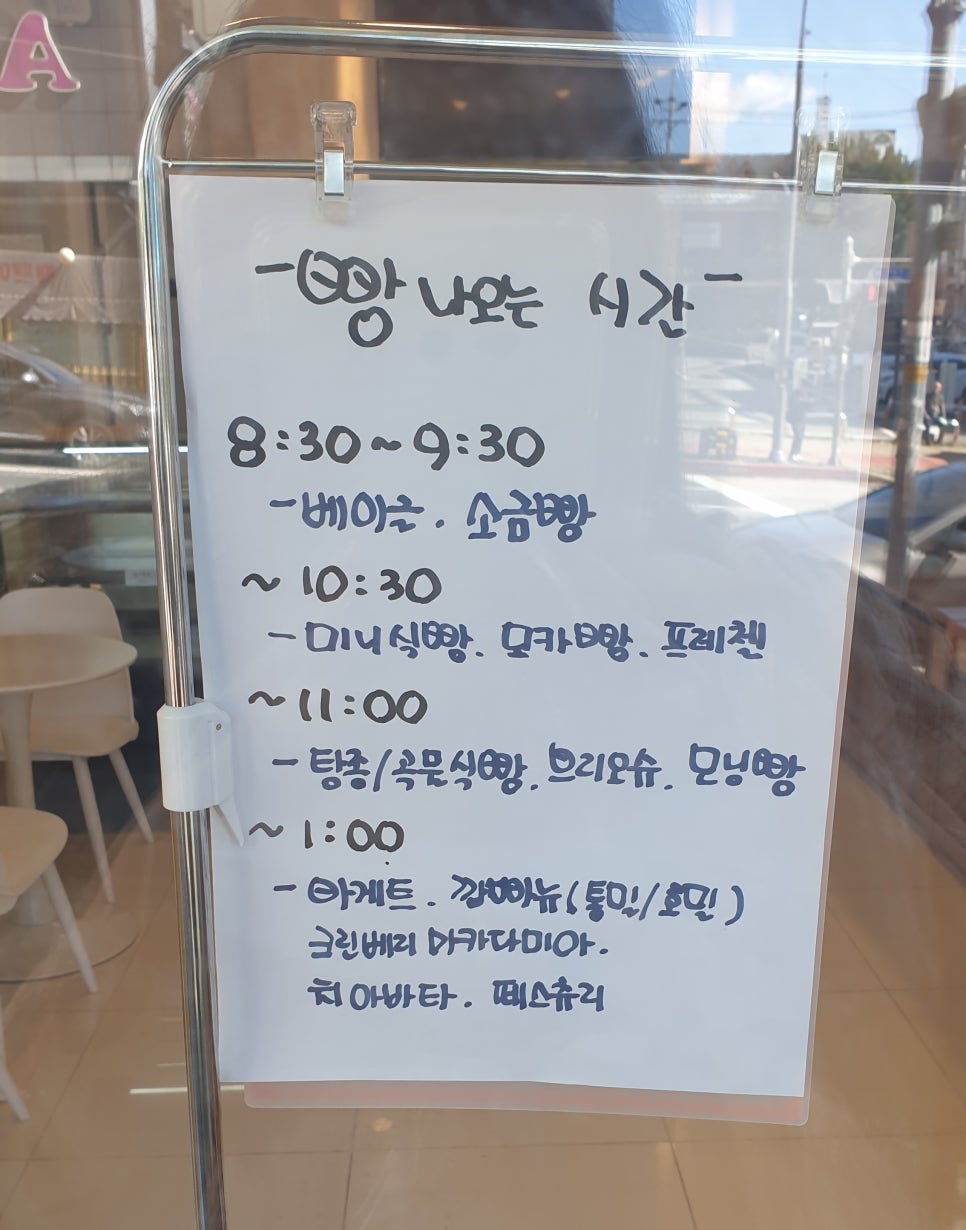 A
-빵 나오는 시간-
8:30~9:30
-베이글. 소금빵
~10:30
-미니식빵. 모카빵. 프레첼
~11:00
-탕종/곡물식빵. 브리오슈. 모닝빵
~1:00
-바게트. 깜빠뉴(통밀/호밀)
크린베리 마카다미아.
치아바타. 페스츄리